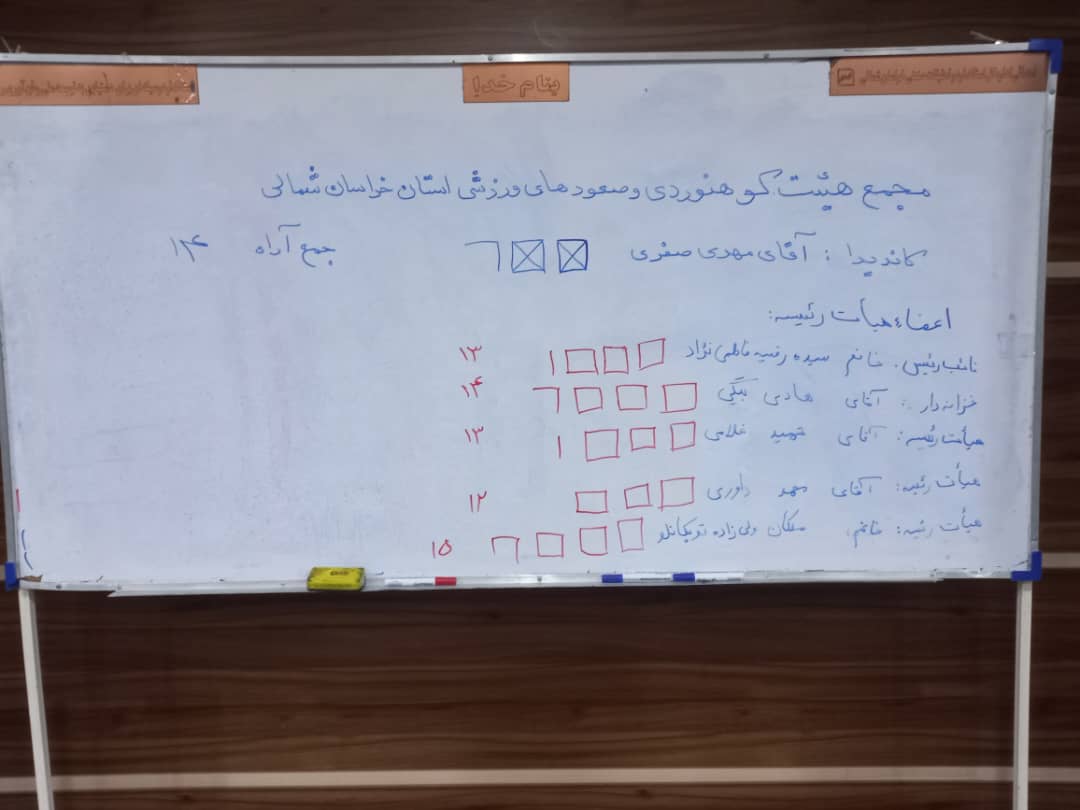 بنام خدا
مجمع هیئت کوهنوردی و صعودهای ورزشی استان خراسان شمالی
کاندیدا : آقای مهدی صفری جمع آراء ۱۴
اعضاء هیأت رئیسه:
نائب رئیس: خانم سیده رقیه فاطمی نژاد ۱۳
خزانه دار : آقای هادی بیگی ۱۴
هیأت رئیسه: آقای غلامی ۱۳
هیأت رئیسه: آقای محمد داوری ۱۲
هیأت رئیسه: خانم ولی زاده توپکانلو ۱۵